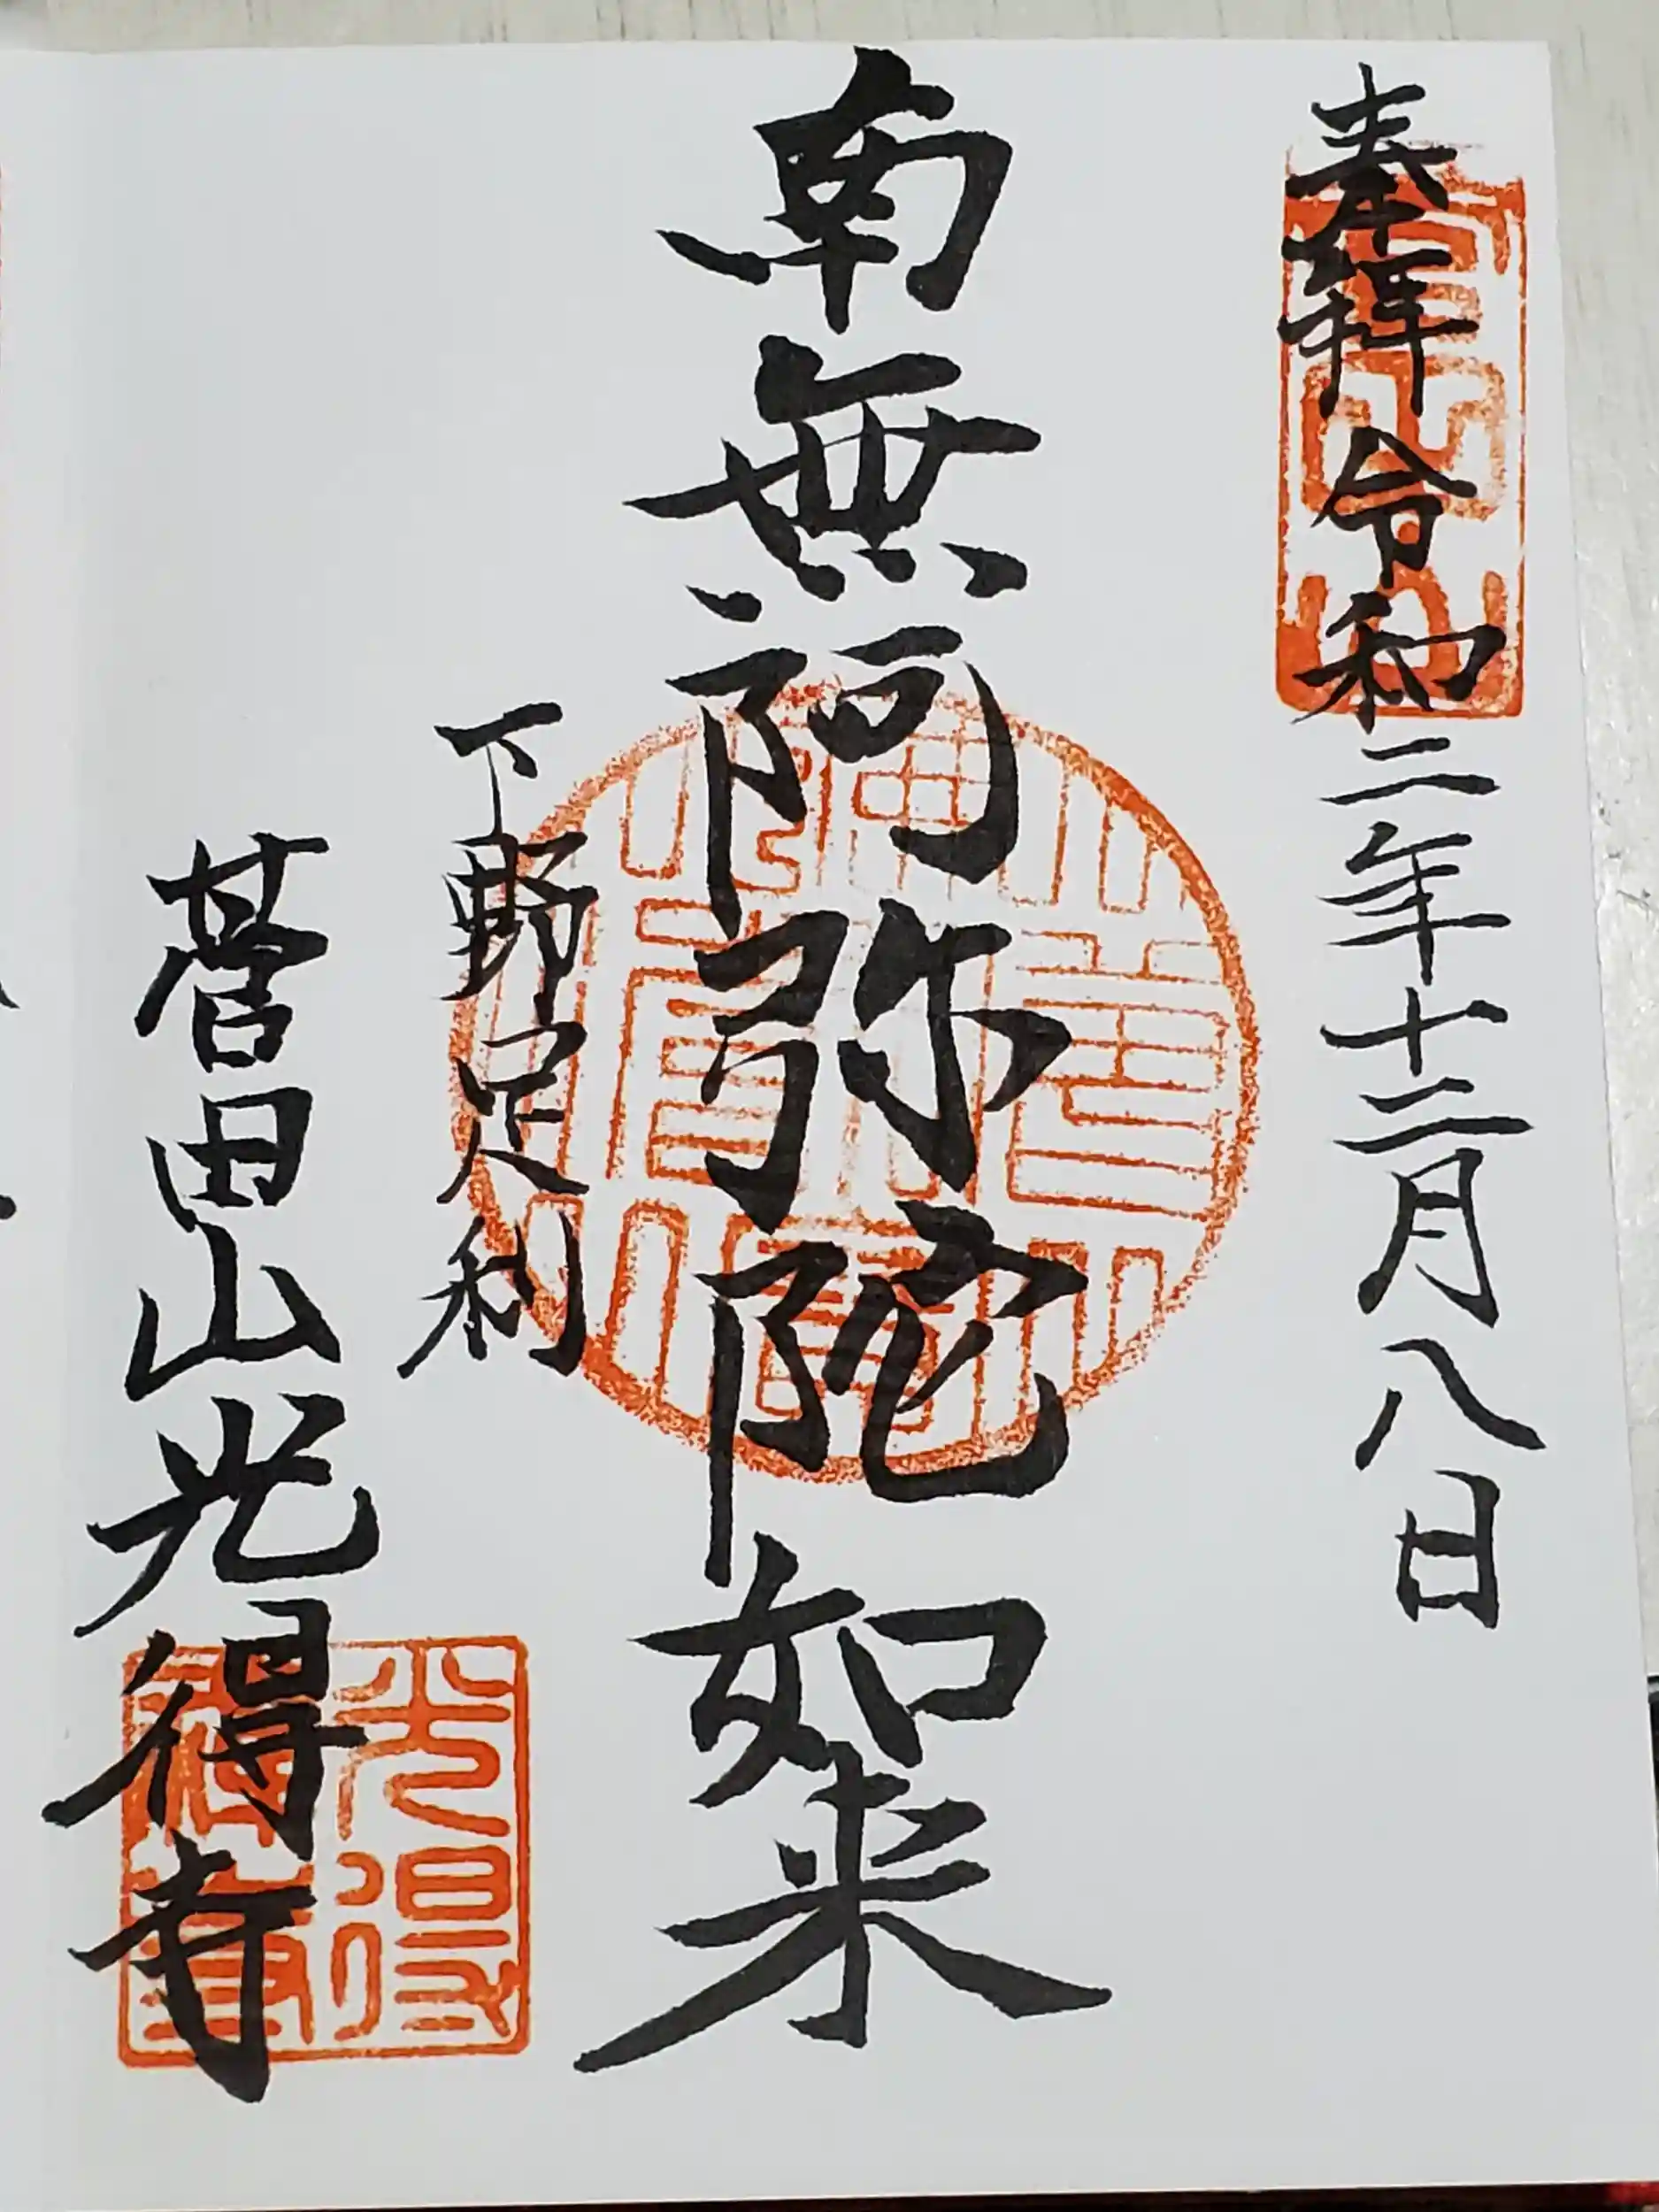 奉拝 令和二年十二月八日
南無阿弥陀如来
下野足利
菅田山光得寺
光得